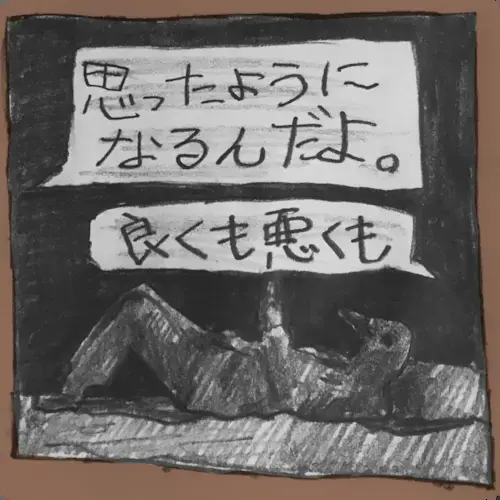 思ったように
なるんだよ。
良くも悪くも